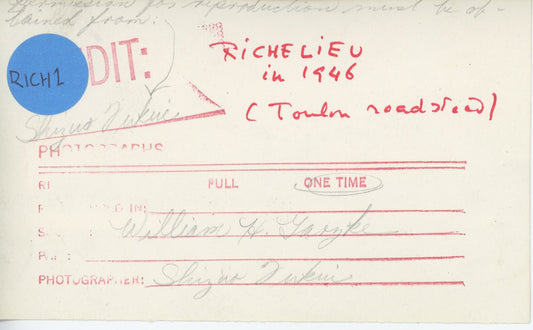 Permission for reproduction must be ob-
tained from:
RICH1
DIT:
RICHELIEU
in 1946
(Toulon roadstead)
Shizuo
PHOTOGRAPHS
FULL ONE TIME
IN:
William H. Garzke
PHOTOGRAPHER: Shizuo